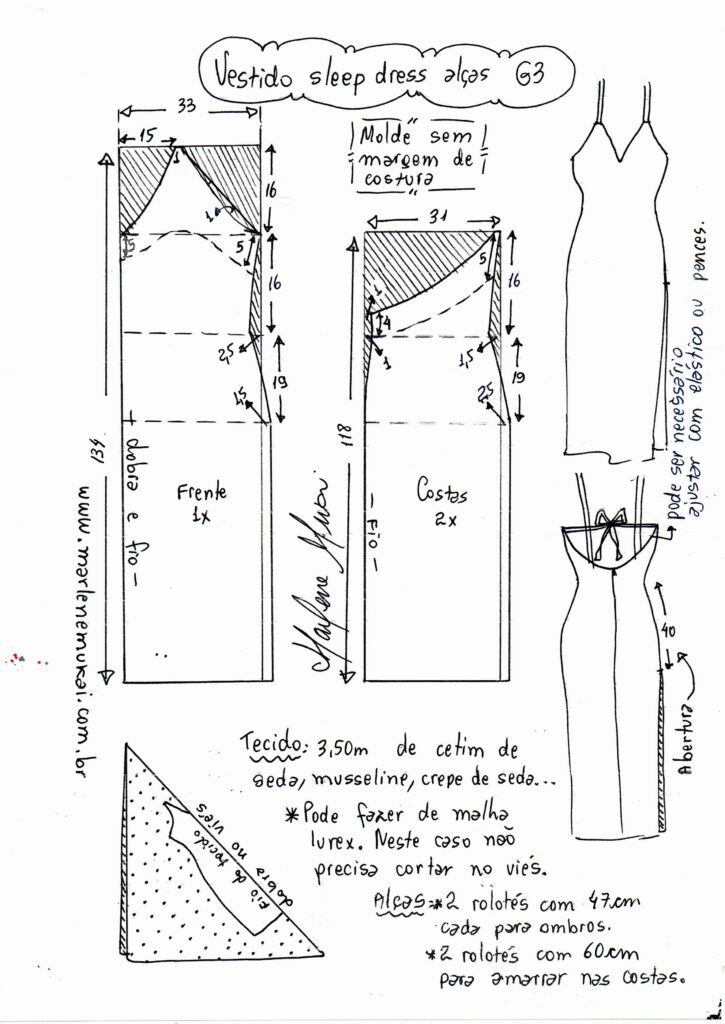 Vestido sleep dress alças G3
33
15
1
16
1
5
5
16
2,5
19
1,5
134
dobra e fio
Frente
1x
www.marlenemukai.com.br
Molde sem
margem de
costura
31
5
16
1
4
1
1,5
19
2,5
118
Costas
2x
Fio
Marlene Mukai
pode ser necessário
ajustar com elástico ou pences.
40
Abertura
dobra no viés
fio do tecido
Tecido: 3,50m de cetim de
seda, musseline, crepe de seda...
*Pode fazer de malha
lurex. Neste caso não
precisa cortar no viés.
Alças:*2 rolotés com 47cm
cada para ombros.
*2 rolotés com 60cm
para amarrar nas costas.